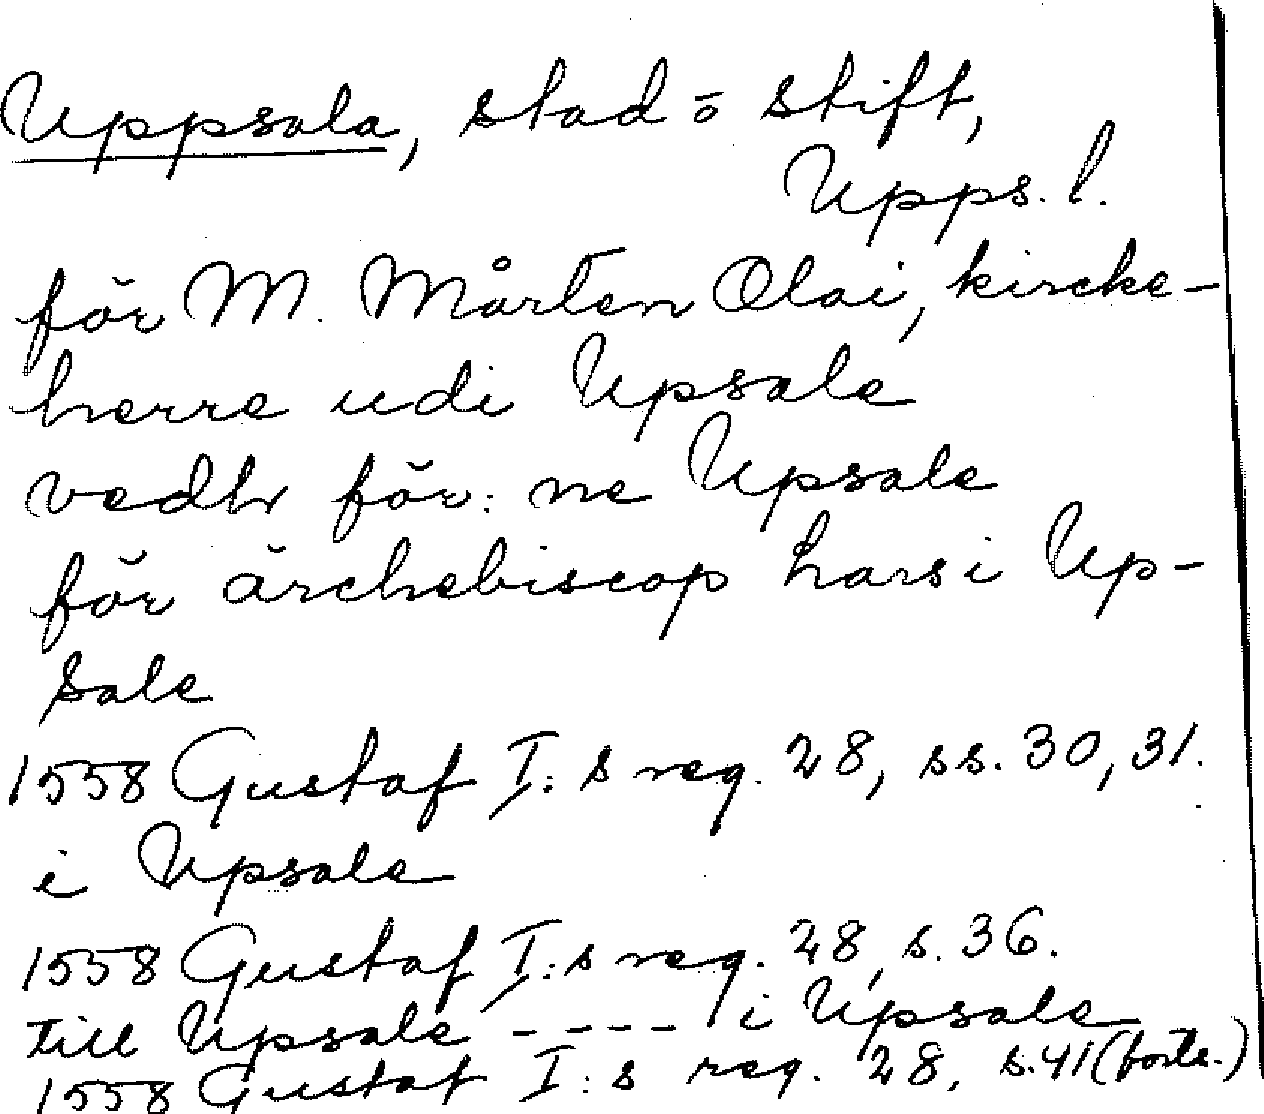 Uppsala, stad o stift,
Upps. l.
för M. Mårten Olai, kircke-
herre udi Upsale
vedh för: ne Upsale
för ärchebiscop Lars i Up-
sale
1558 Gustaf I:s reg. 28, ss. 30, 31.
i Upsale
1558 Gustaf I:s reg. 28, s. 36.
till Upsale - - - - i Upsale
1558 Gustaf I:s reg. 28, s. 41 (forts.)